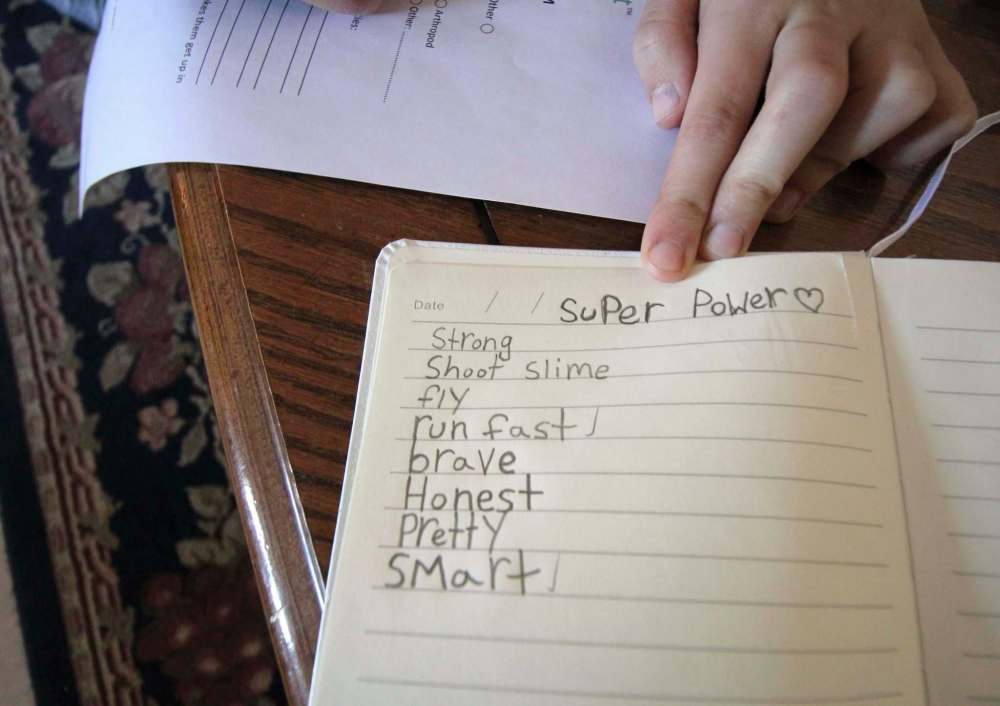 kes them get up in
ies:
Other:
Arthropod
Other
Date / / SuPer Power♡
Strong
Shoot slime
fly
run fast
brave
Honest
Pretty
SMart